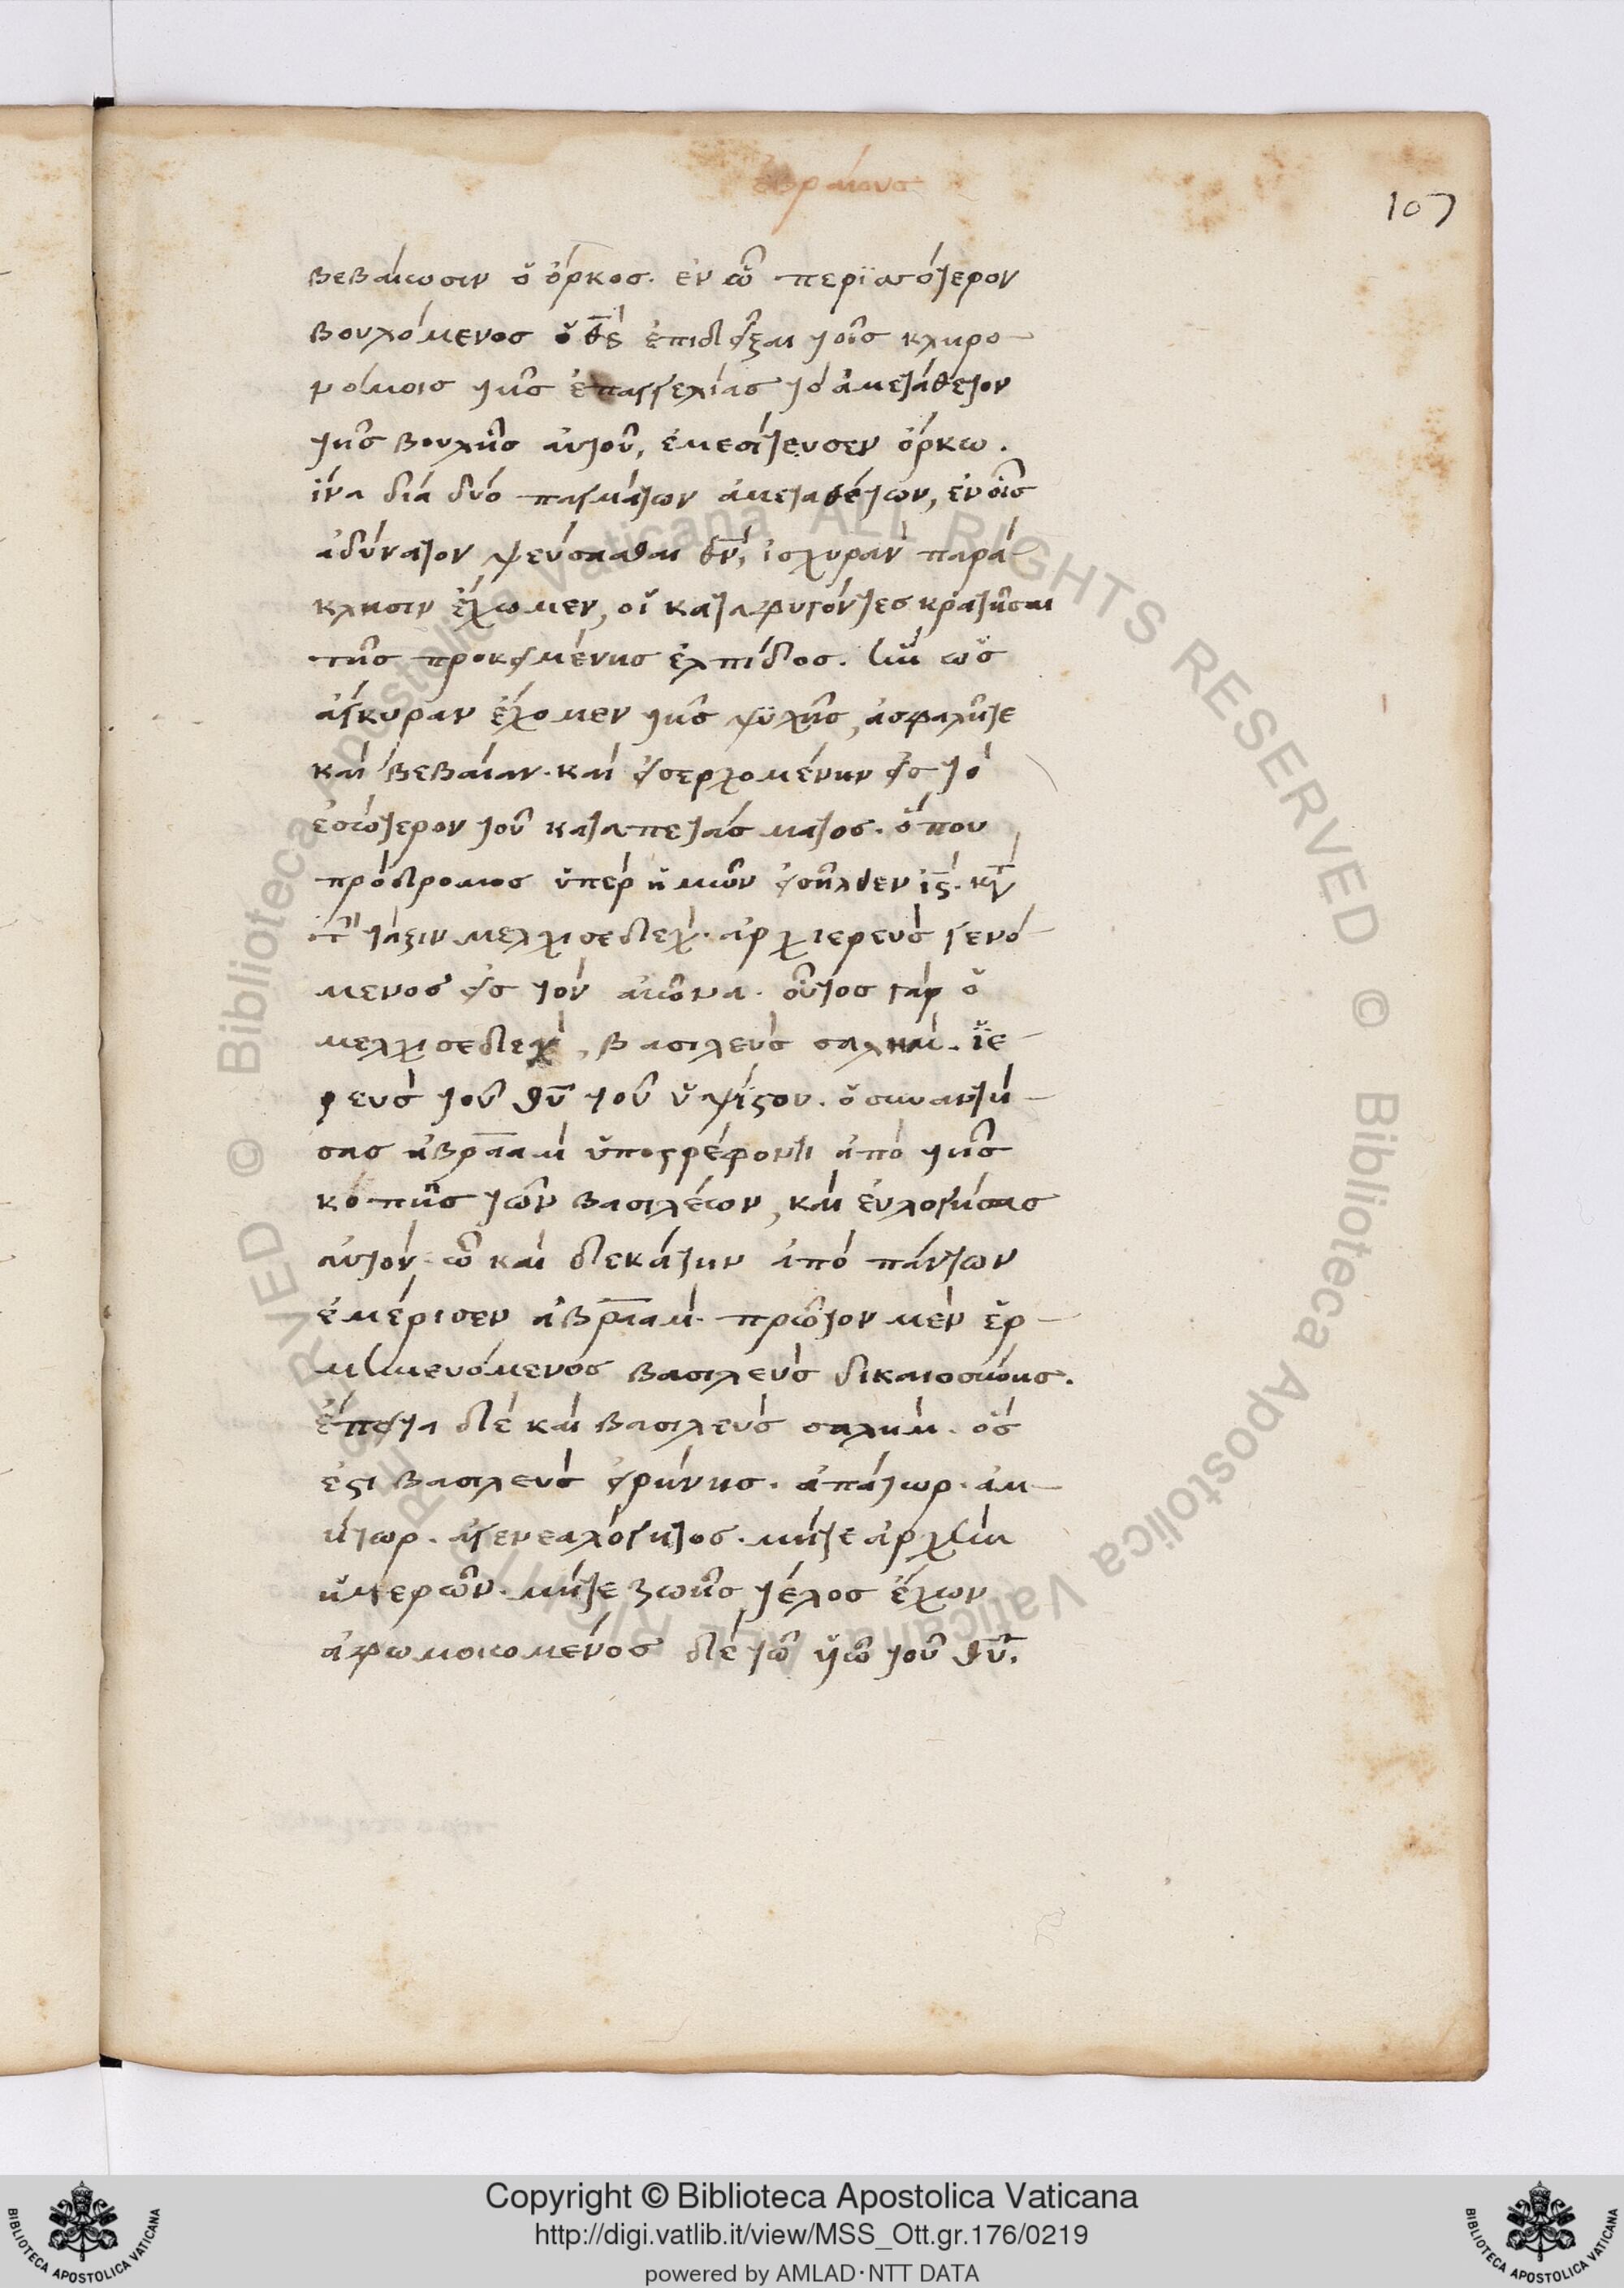 ἑβραίους
107
βεβαίωσιν ὁ ὅρκος. ἐν ᾧ περϊσσότερον
βουλόμενος ὁ θς ἐπιδεῖξαι τοῖς κληρο-
νόμοις τῆς ἐπαγγελίας τὸ ἀμετάθετον
τῆς βουλῆς αὐτοῦ, ἐμεσίτευσεν ὅρκω.
ἵνα διὰ δύο πραγμάτων ἀμεταθέτων, ἐν οἷς
ἀδύνατον ψεύσασθαι θν, ἰσχυρὰν παρά-
κλησιν ἔχωμεν, οἱ καταφυγόντες κρατῆσαι
τῆς προκειμένης ἐλπίδος. ἣν ὡς
ἄγκυραν ἔχομεν τῆς ψϋχῆς, ἀσφαλῆτε
καὶ βεβαίαν. καὶ εἰσερχομένην εἰς τὸ
ἐσώτερον τοῦ καταπετάσματος. ὅπου
πρόδρομος ὑπὲρ ἡμῶν εἰσῆλθεν ις. κατὰ
τὴν τάξιν μελχισεδὲχ. ἀρχιερεὺς γενό-
μενος εἰς τὸν αἰῶνα. οὗτος γὰρ ὁ
μελχισεδὲχ, βασιλεὺς σαλὴμ. ἱε-
ρεὺς τοῦ θυ τοῦ ὑψίστου. ὁ συναντή-
σας ἀβραὰμ ὑποστρέφοντι ἀπὸ τῆς
κοπῆς τῶν βασιλέων, καὶ εὐλογήσας
αὐτόν. ᾧ καὶ δεκάτην ἀπὸ πάντων
ἐμέρισεν ἀβραάμ. πρῶτον μὲν ἑρ-
μηνευόμενος βασιλεὺς δικαιοσύνης.
ἔπειτα δὲ καὶ βασιλεὺς σαλήμ. ὅς
ἐστι βασιλεὺς εἰρήνης. ἀπάτωρ. ἀμ-
ήτωρ. ἀγενεαλόγητος. μήτε ἀρχὴν
ἡμερῶν. μήτε ζωῆς τέλος ἔχων
ἀφωμοιωμένος δὲ τῶ υἱῶ τοῦ θυ.
© Biblioteca Apostolica Vaticana ALL RIGHTS RESERVED © Biblioteca Apostolica Vaticana ALL RIGHTS RESERVED
BIBLIOTECA APOSTOLICA VATICANA
Copyright © Biblioteca Apostolica Vaticana
http://digi.vatlib.it/view/MSS_Ott.gr.176/0219
powered by AMLAD·NTT DATA
BIBLIOTECA APOSTOLICA VATICANA